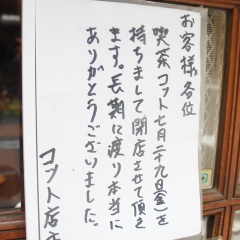 お客様各位
喫茶コット七月二十九日(金)を
持ちまして閉店させて頂き
ます。長期に渡り本当に
ありがとうございました。
コット店主